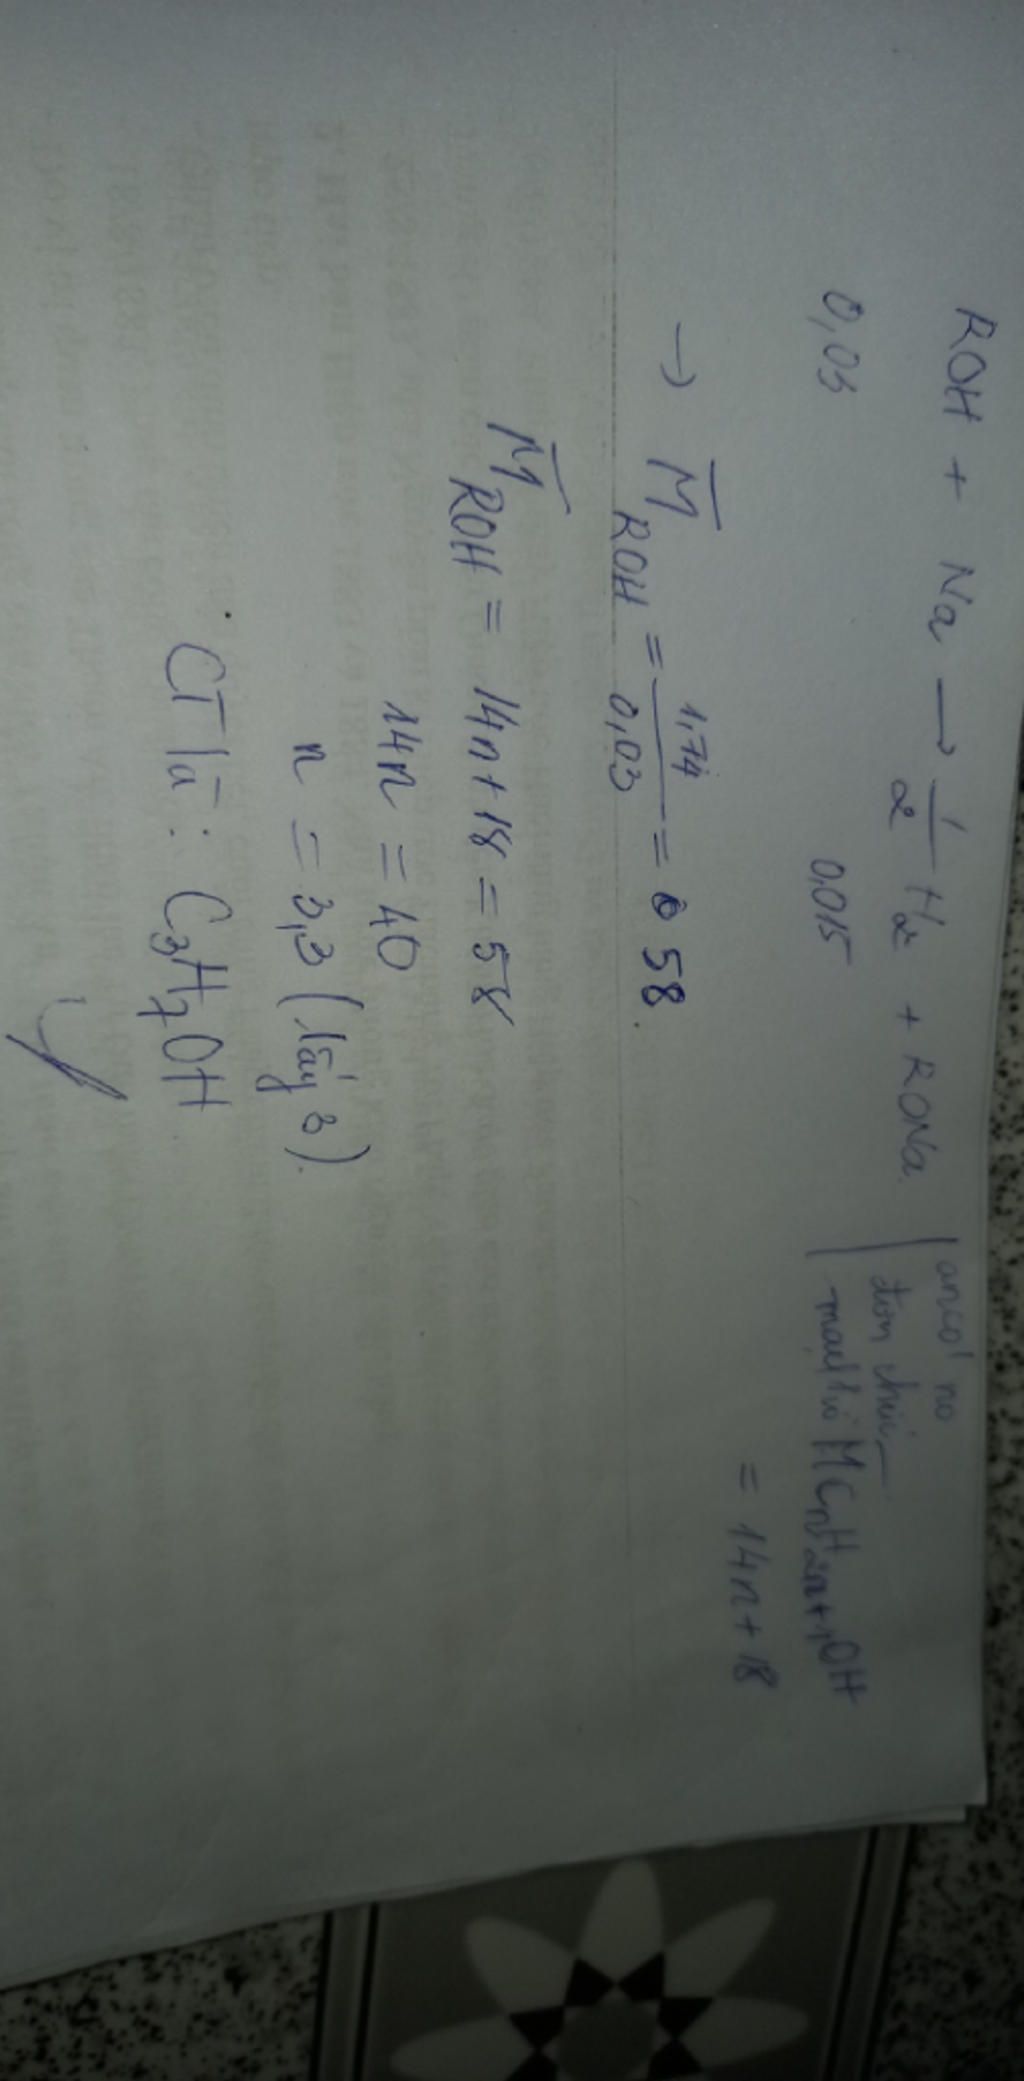 ROH + Na → 1/2 H2 + RONa
0,03 0,015
ancol no
đơn chức
mạch hở MCnH2n+1OH
= 14n + 18
→ M̅ROH = 1,74/0,03 = 58.
M̅ROH = 14n + 18 = 58
14n = 40
n = 3,3 (lấy 3).
CT là: C3H7OH